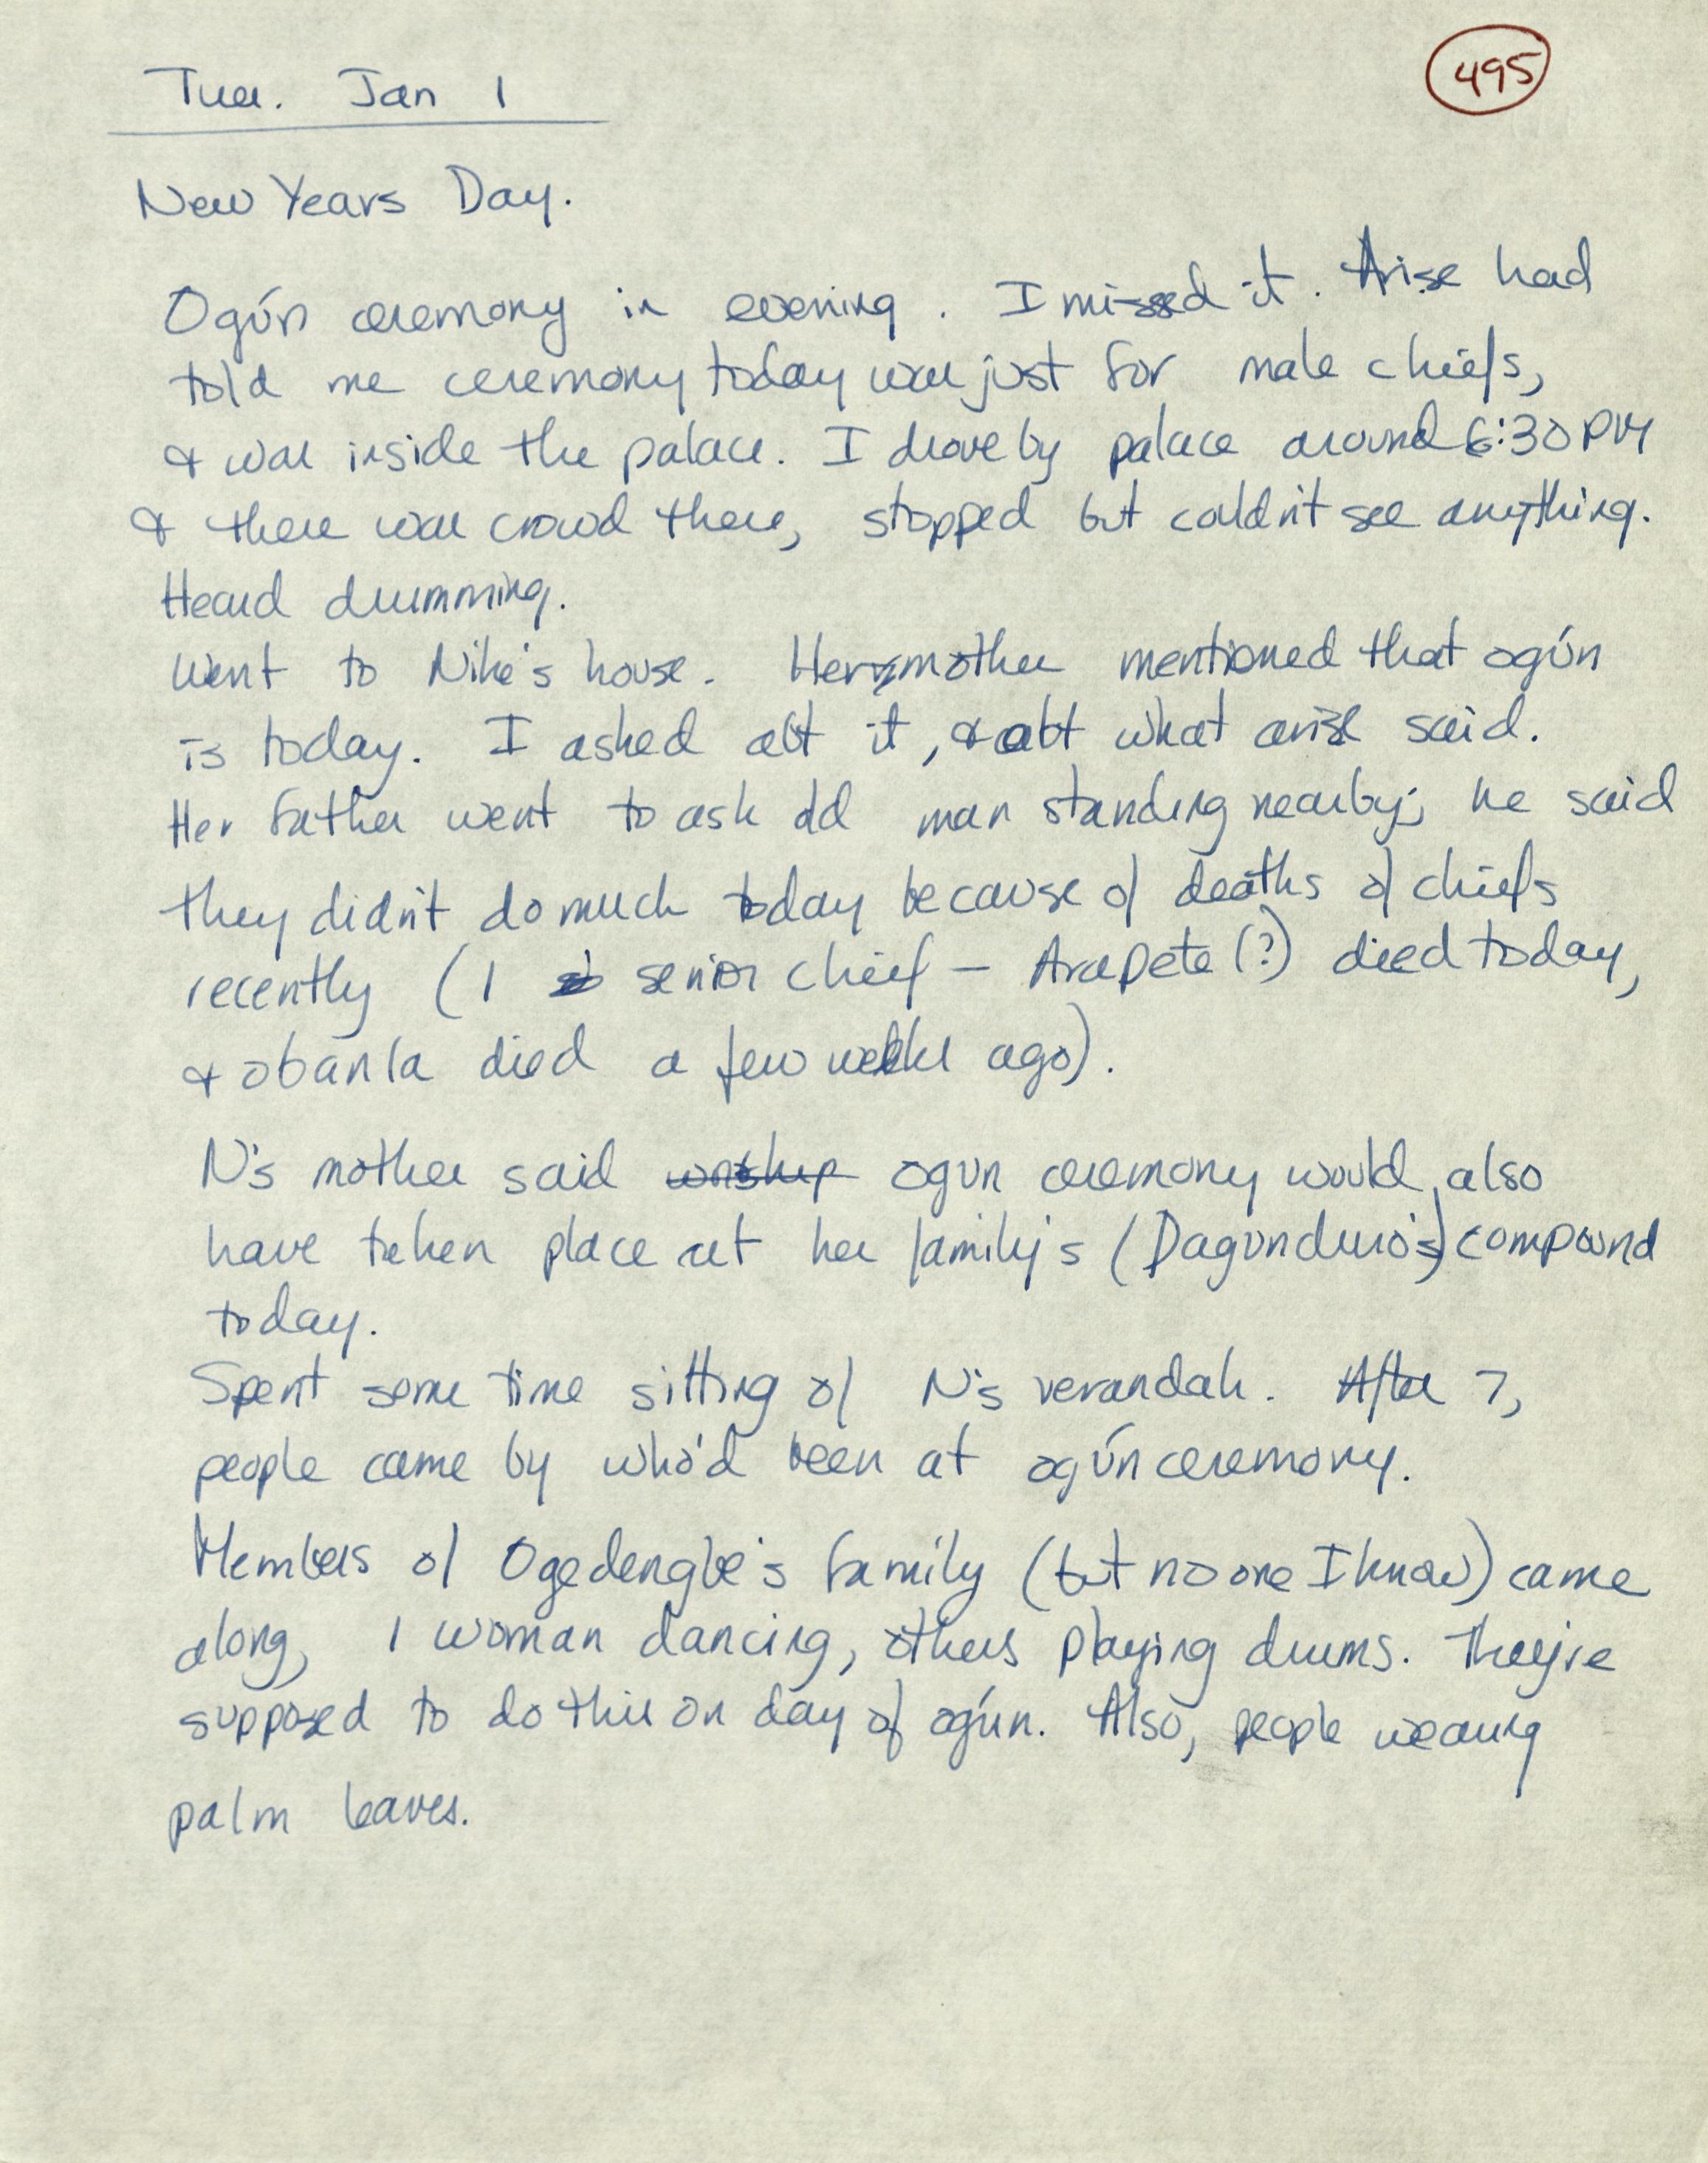 Tues. Jan 1
495
New Years Day.
Ogún ceremony in evening. I missed it. Arise had
told me ceremony today was just for male chiefs,
& was inside the palace. I drove by palace around 6:30 PM
& there was crowd there, stopped but couldn't see anything.
Heard drumming.
Went to Nike's house. Her mother mentioned that ogún
is today. I asked abt it, & abt what arise said.
Her father went to ask old man standing nearby; he said
they didn't do much today because of deaths of chiefs
recently (1 senior chief – Arapete (?) died today,
& obanla died a few weeks ago).
N's mother said worship ogun ceremony would also
have taken place at her family's (Dagunduro's) compound
today.
Spent some time sitting of N's verandah. After 7,
people came by who'd been at ogún ceremony.
Members of Ogedengbe's family (but no one I know) came
along, 1 woman dancing, others playing drums. They're
supposed to do this on day of ogún. Also, people wearing
palm leaves.